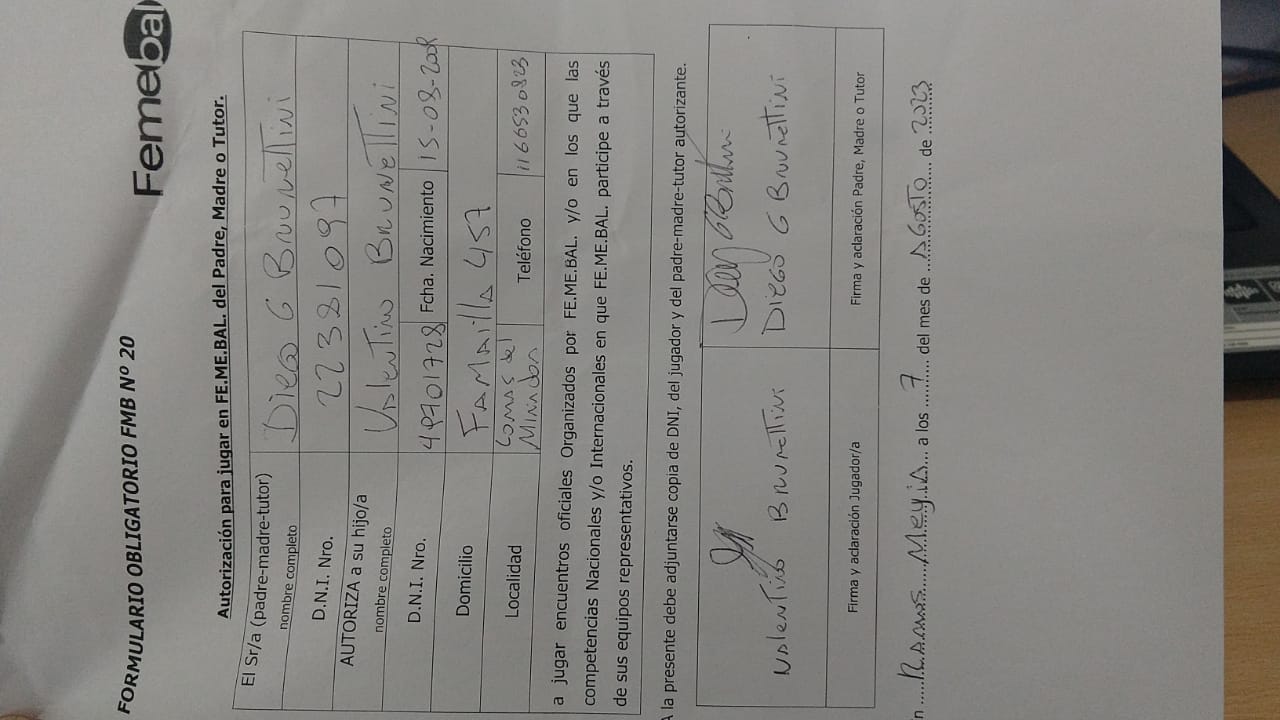 FORMULARIO OBLIGATORIO FMB Nº 20
Femebal
Autorización para jugar en FE.ME.BAL. del Padre, Madre o Tutor.
El Sr/a (padre-madre-tutor)
nombre completo
Diego G Brunettini
D.N.I. Nro.
22381097
AUTORIZA a su hijo/a
nombre completo
Valentino Brunettini
D.N.I. Nro.
49701728
Fcha. Nacimiento
15-09-2009
Domicilio
FAMAILLA 457
Localidad
Lomas del
Mirador
Teléfono
1166530823
a jugar encuentros oficiales Organizados por FE.ME.BAL. y/o en los que las
competencias Nacionales y/o Internacionales en que FE.ME.BAL. participe a través
de sus equipos representativos.
A la presente debe adjuntarse copia de DNI, del jugador y del padre-madre-tutor autorizante.
Valentino Brunettini
Diego G Brunettini
Firma y aclaración Jugador/a
Firma y aclaración Padre, Madre o Tutor
n ....Ramos....Mejia... a los ...7...... del mes de ...Agosto.... de ..2023..